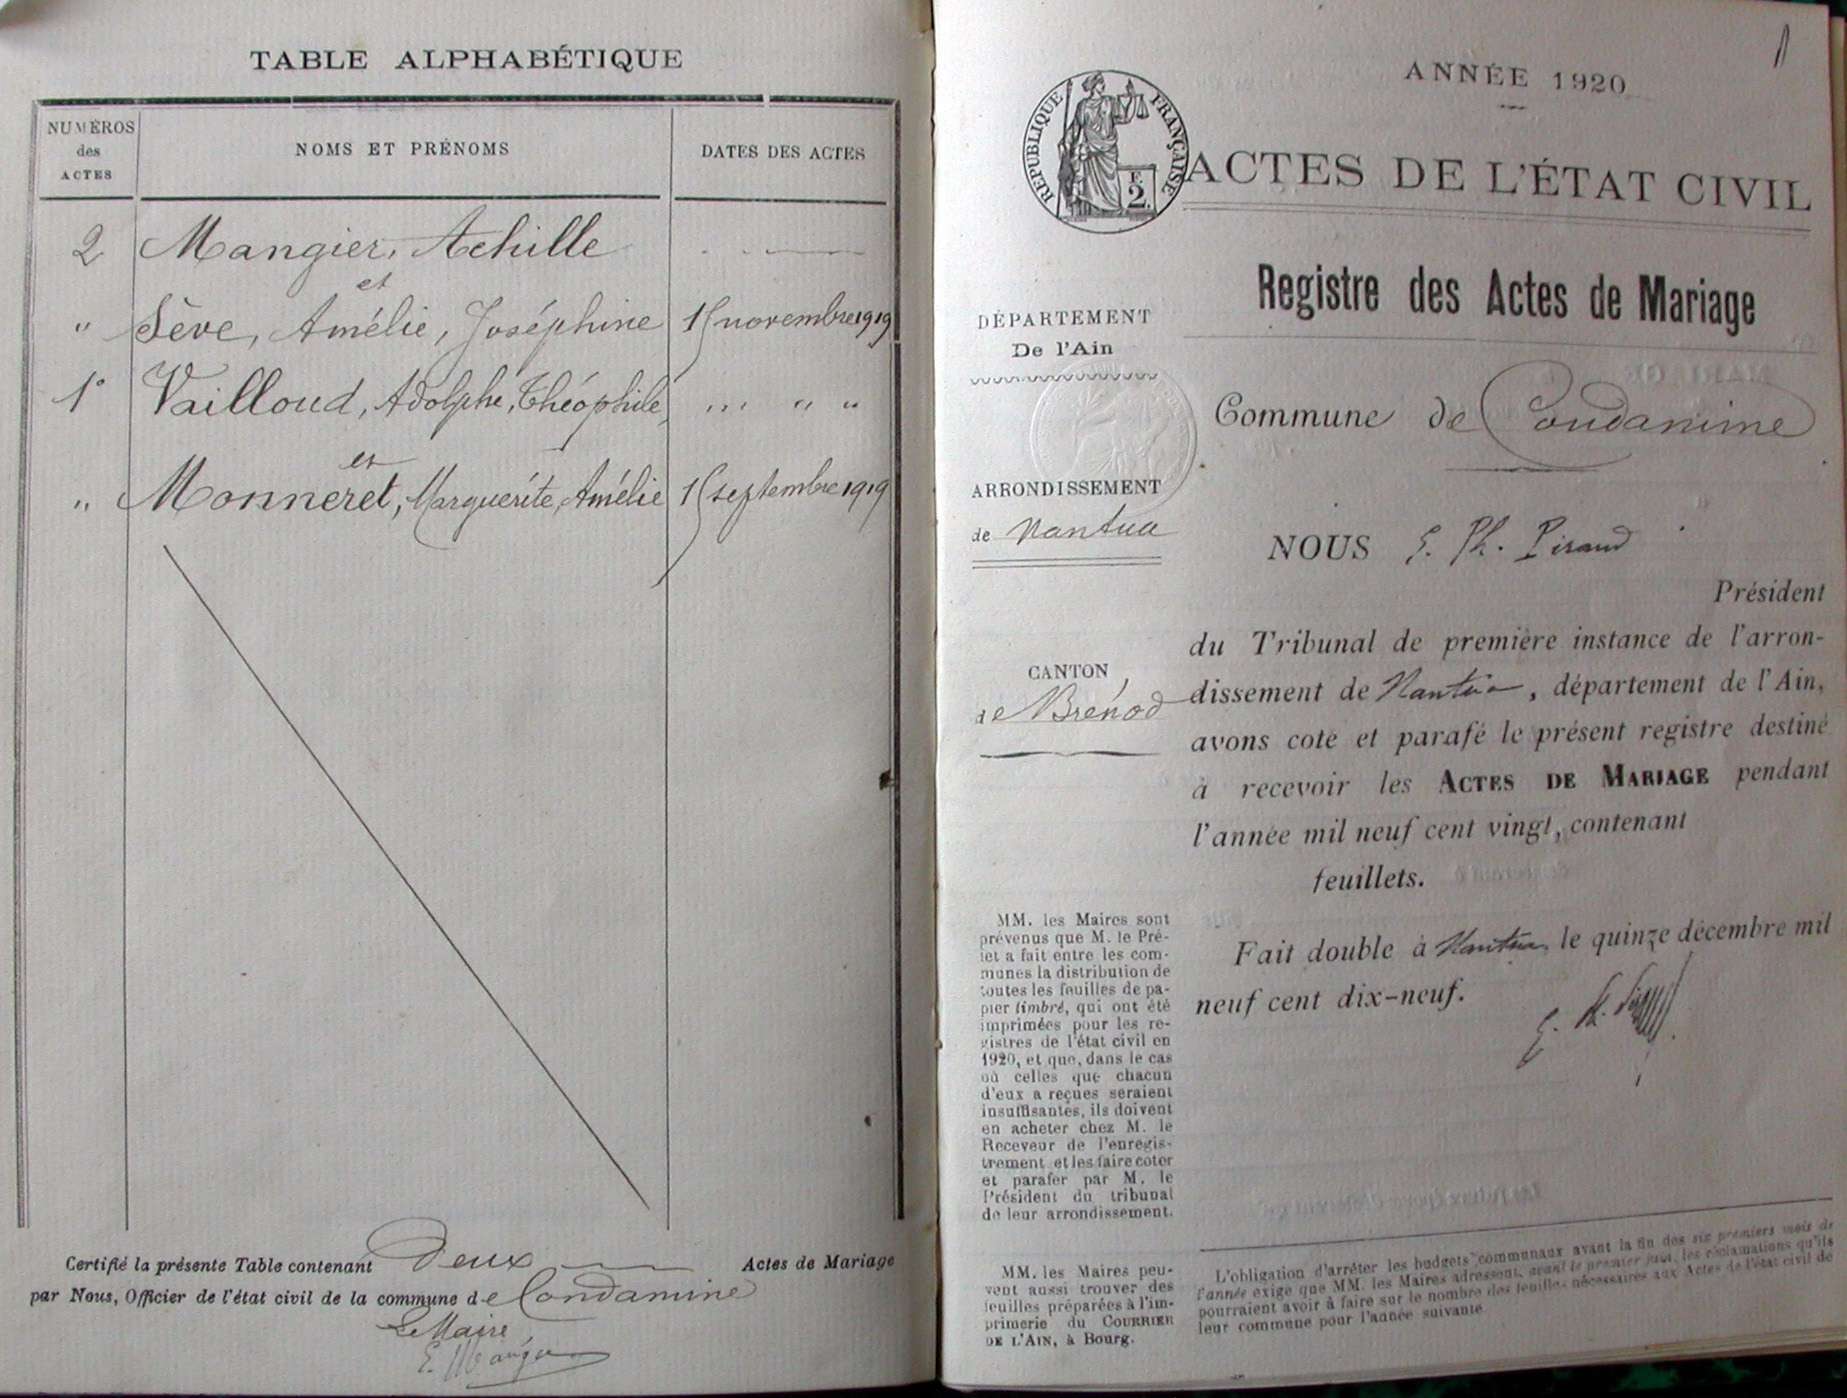 TABLE ALPHABÉTIQUE
NUMÉROS
des
ACTES
NOMS ET PRÉNOMS
DATES DES ACTES
2 Mangier, Achille
et
" Sève, Amélie, Joséphine 15 novembre 1919
1° Vailloud, Adolphe, Théophile, ... " "
et
" Monneret, Marguerite, Amélie 15 septembre 1919
Certifié la présente Table contenant Deux Actes de Mariage
par Nous, Officier de l'état civil de la commune de Condamine
Le Maire,
E. Mangier
ANNÉE 1920
RÉPUBLIQUE FRANÇAISE
F.
2.
ACTES DE L'ÉTAT CIVIL
Registre des Actes de Mariage
DÉPARTEMENT
De l'Ain
Commune de Condamine
ARRONDISSEMENT
de Nantua
NOUS E. Ph. Piraud
Président
du Tribunal de première instance de l'arron-
CANTON
de Brénod
dissement de Nantua, département de l'Ain,
avons coté et parafé le présent registre destiné
à recevoir les ACTES DE MARIAGE pendant
l'année mil neuf cent vingt, contenant
feuillets.
Fait double à Nantua, le quinze décembre mil
neuf cent dix-neuf.
MM. les Maires sont
prévenus que M. le Pré-
fet a fait entre les com-
munes la distribution de
toutes les feuilles de pa-
pier timbré, qui ont été
imprimées pour les re-
gistres de l'état civil en
1920, et que, dans le cas
où celles que chacun
d'eux a reçues seraient
insuffisantes, ils doivent
en acheter chez M. le
Receveur de l'enregis-
trement et les faire coter
et parafer par M. le
Président du tribunal
de leur arrondissement.
MM. les Maires peu-
vent aussi trouver des
feuilles préparées à l'im-
primerie du COURRIER
DE L'AIN, à Bourg.
L'obligation d'arrêter les budgets communaux avant la fin des six premiers mois de
l'année exige que MM. les Maires adressent, avant le premier juin, les réclamations qu'ils
pourraient avoir à faire sur le nombre des feuilles nécessaires aux Actes de l'état civil de
leur commune pour l'année suivante